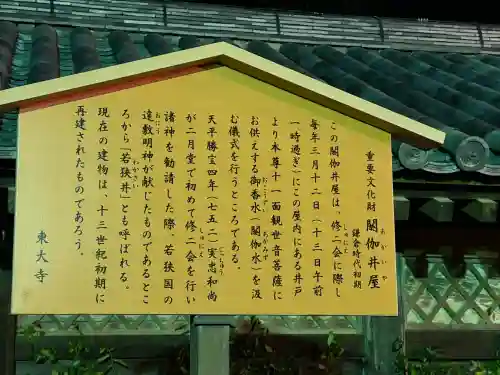 重要文化財 閼伽井屋
あかいや
鎌倉時代初期
この閼伽井屋は、修二会に際し
しゅにえ
毎年三月十二日(十三日午前
一時過ぎ)にこの屋内にある井戸
より本尊十一面観世音菩薩に
お供えする御香水(閼伽水)を汲
おこうずい
あかみず
む儀式を行うところである。
天平勝宝四年(七五二)実忠和尚
じっちゅう
が二月堂で初めて修二会を行い
しゅにえ
諸神を勧請した際、若狭国の
遠敷明神が献じたものであるとこ
おにう
ろから「若狭井」とも呼ばれる。
わかさい
現在の建物は、十三世紀初期に
再建されたものであろう。
東大寺